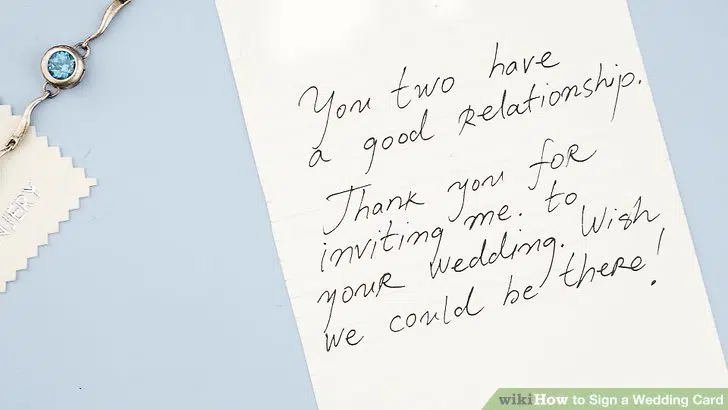 You two have
a good relationship.
Thank you for
inviting me. to
your wedding. Wish
we could be there!
wikiHow to Sign a Wedding Card